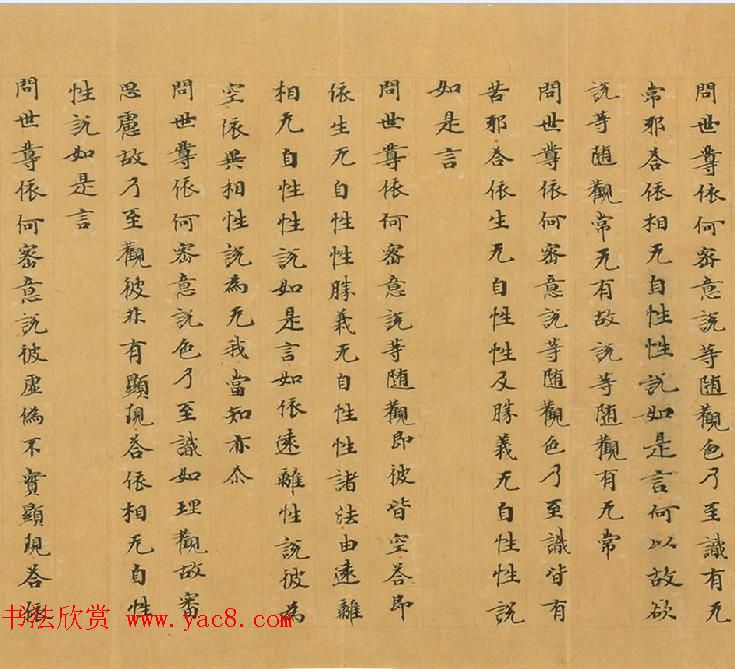 問世尊依何密意說等随觀色乃至識有无
常邪荅依相无自性性說如是言何以故欲
說等随觀常无有故說等随觀有无常
問世尊依何密意說等随觀色乃至識皆有
苦邪荅依生无自性性及勝義无自性性說
如是言
問世尊依何密意說等随觀即彼皆空荅即
依生无自性性勝義无自性性諸法由遠離
相无自性性說如是言如依遠離性說彼為
空依異相性說為无我當知亦尒
問世尊依何密意說色乃至識如理觀故審
思慮故乃至觀彼非有顯現荅依相无自性
性說如是言
問世尊依何密意說彼虛偽不實顯現荅依
书法欣赏 www.yac8.com